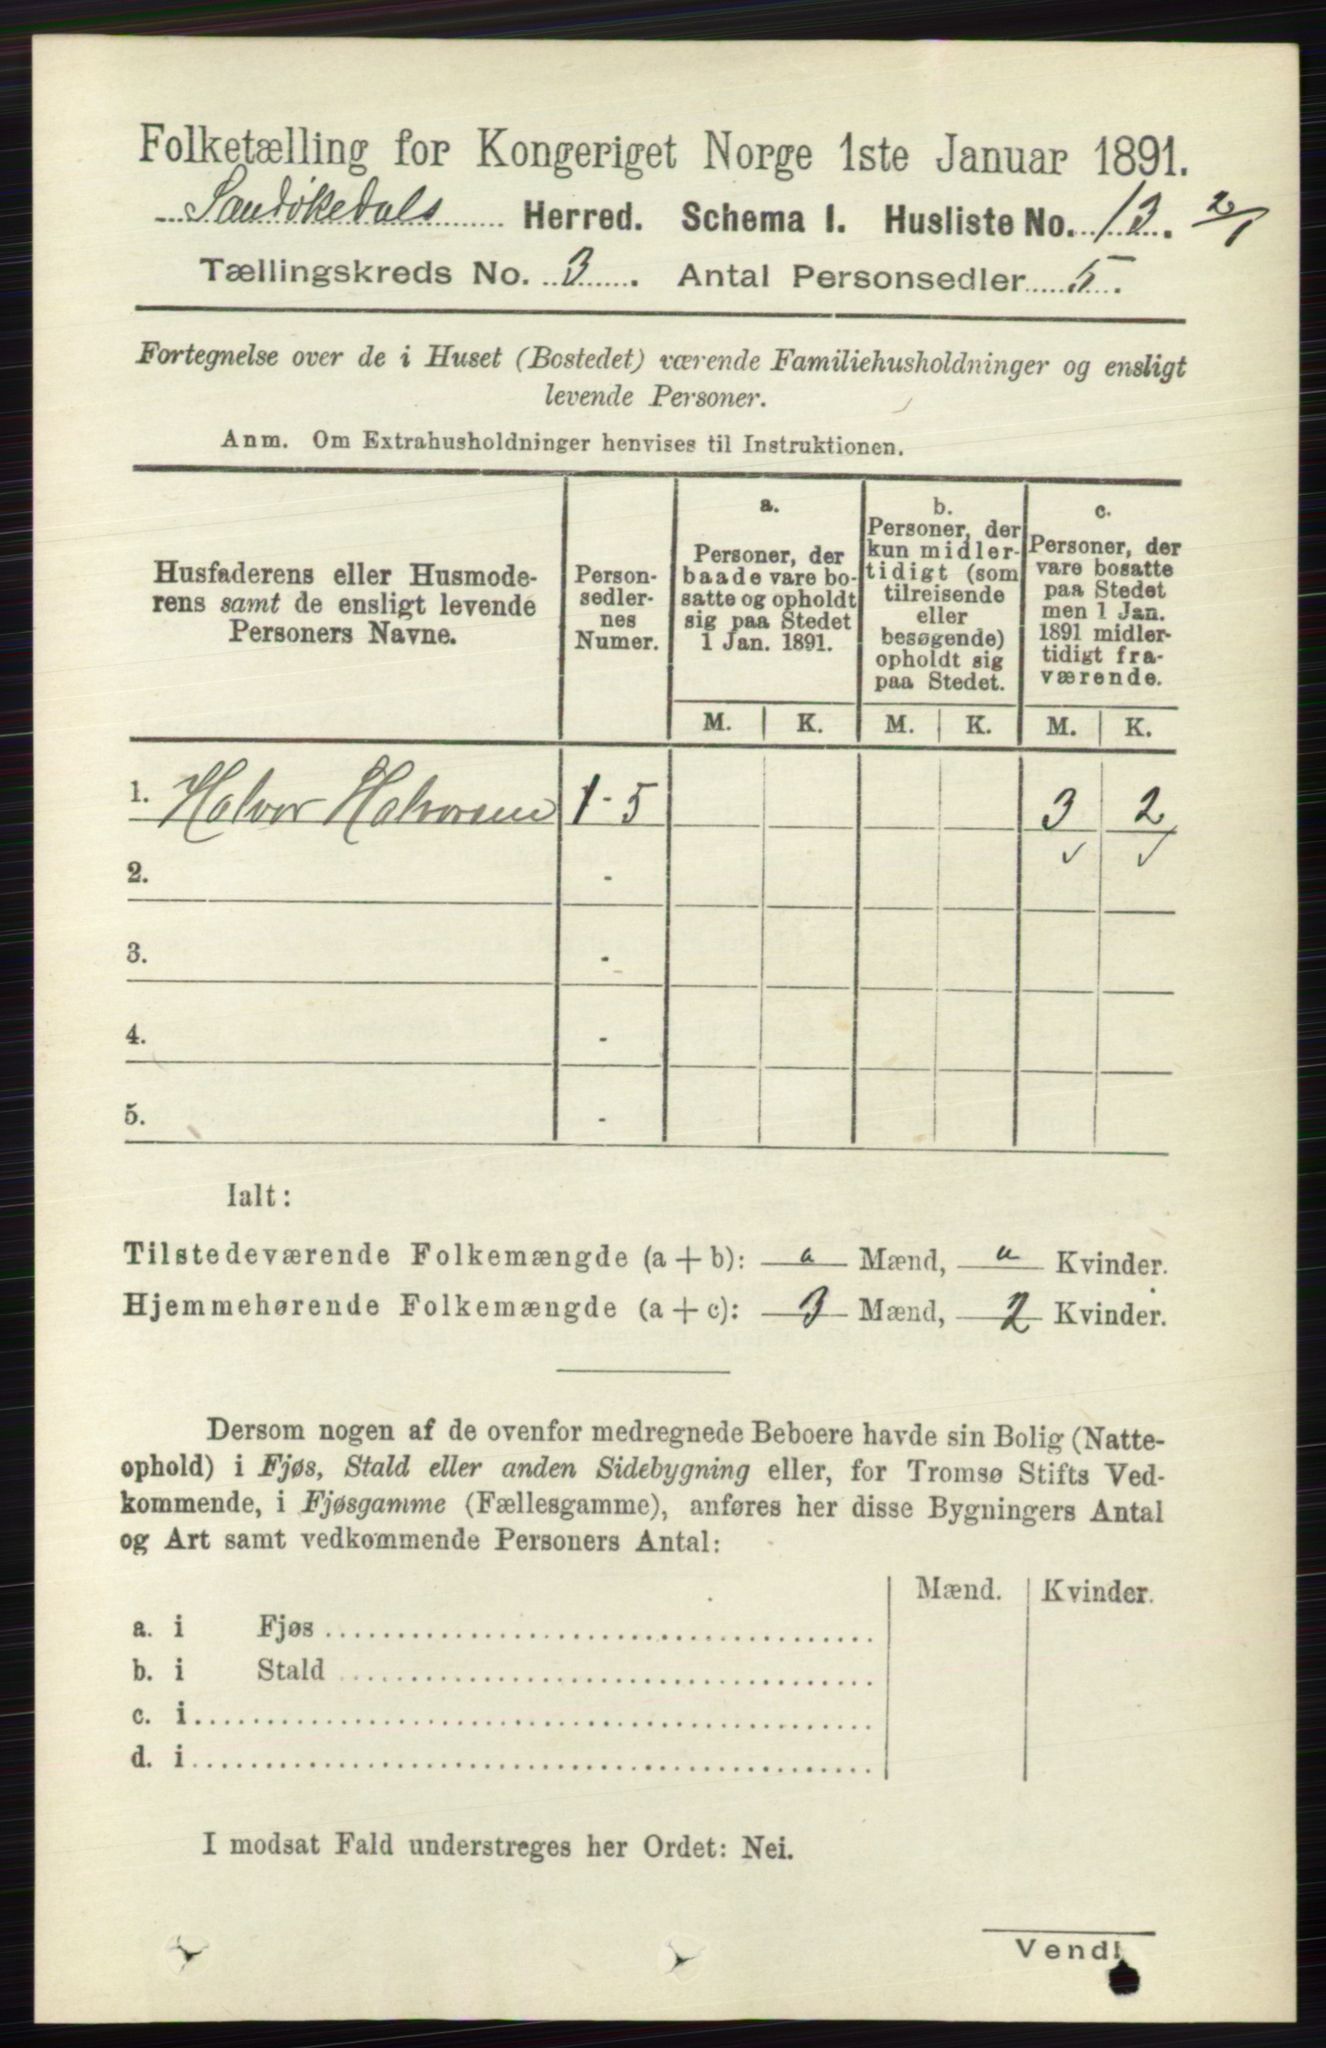 Folketælling for Kongeriget Norge 1ste Januar 1891.
Sandøkedals Herred. Schema I. Husliste No. 13. 2/1
Tællingskreds No. 3. Antal Personsedler 5.
Fortegnelse over de i Huset (Bostedet) værende Familiehusholdninger og ensligt
levende Personer.
Anm. Om Extrahusholdninger henvises til Instruktionen.
Husfaderens eller Husmode-
rens samt de ensligt levende
Personers Navne.
Person-
sedler-
nes
Numer.
a.
Personer, der
baade vare bo-
satte og opholdt
sig paa Stedet
1 Jan. 1891.
b.
Personer, der
kun midler-
tidigt (som
tilreisende
eller
besøgende)
opholdt sig
paa Stedet.
c.
Personer, der
vare bosatte
paa Stedet
men 1 Jan.
1891 midler-
tidigt fra-
værende.
M. K. M. K. M. K.
1. Halvor Halvorsen 1-5 3 2
✓ ✓
2. -
3. -
4. -
5. -
Ialt:
Tilstedeværende Folkemængde (a + b): " Mænd, " Kvinder.
Hjemmehørende Folkemængde (a + c): 3 Mænd, 2 Kvinder.
Dersom nogen af de ovenfor medregnede Beboere havde sin Bolig (Natte-
ophold) i Fjøs, Stald eller anden Sidebygning eller, for Tromsø Stifts Ved-
kommende, i Fjøsgamme (Fællesgamme), anføres her disse Bygningers Antal
og Art samt vedkommende Personers Antal:
Mænd. Kvinder.
a. i Fjøs
b. i Stald
c. i
d. i
I modsat Fald understreges her Ordet: Nei.
Vend!